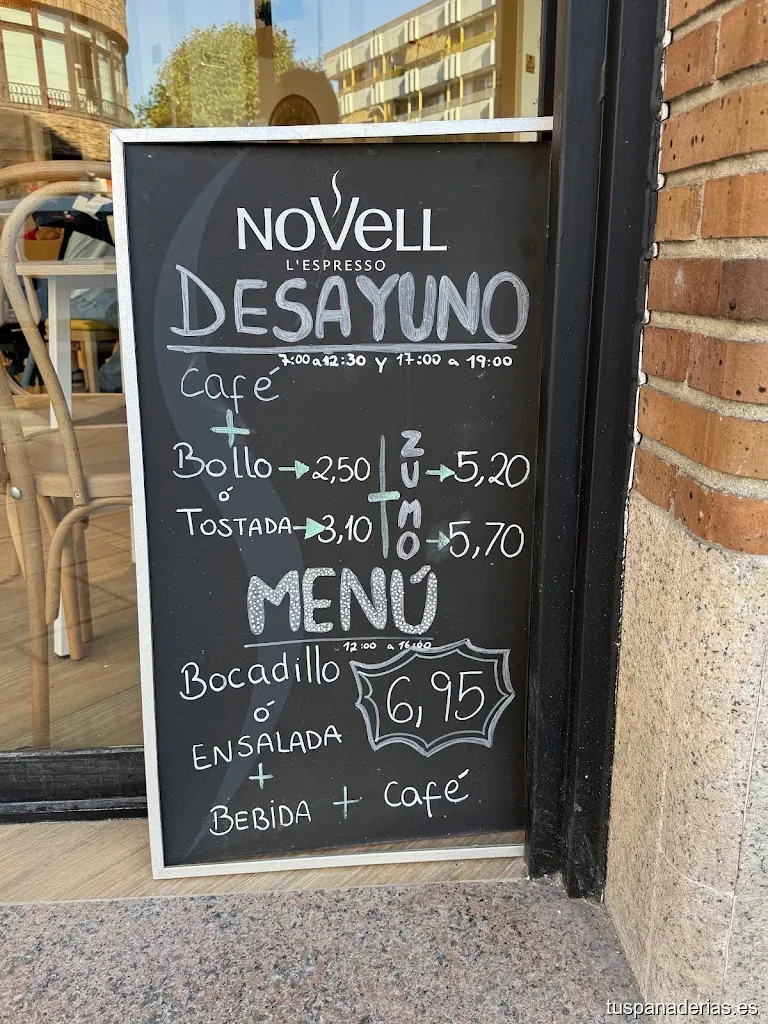 NOVELL
L'ESPRESSO
DESAYUNO
7:00 a 12:30 y 17:00 a 19:00
Café
+
Bollo → 2,50 + ZUMO → 5,20
ó
TOSTADA → 3,10 → 5,70
MENÚ
12:00 a 16:00
Bocadillo 6,95
ó
ENSALADA
+
BEBIDA + Café
tuspanaderias.es